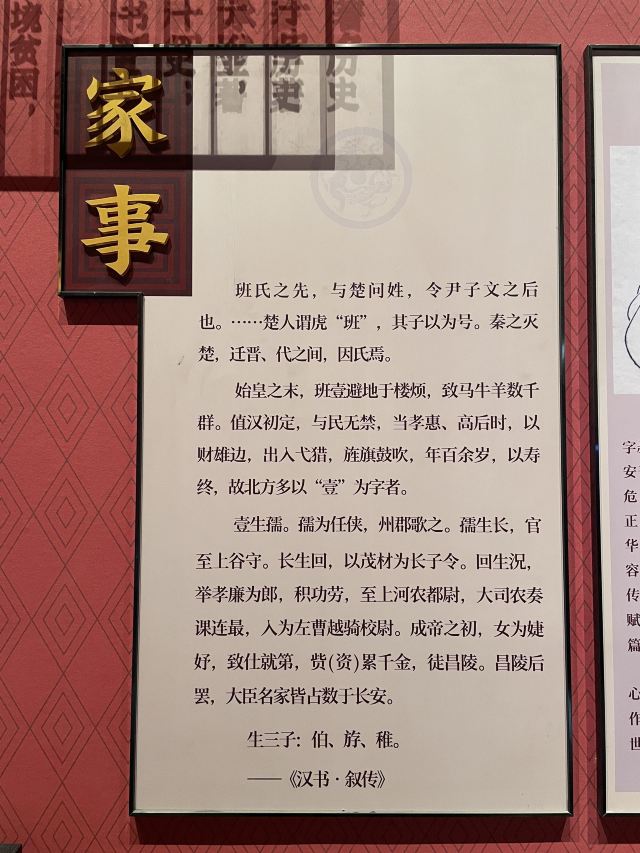 家事
班氏之先，与楚同姓，令尹子文之后
也。……楚人谓虎“班”，其子以为号。秦之灭
楚，迁晋、代之间，因氏焉。
始皇之末，班壹避地于楼烦，致马牛羊数千
群。值汉初定，与民无禁，当孝惠、高后时，以
财雄边，出入弋猎，旌旗鼓吹，年百余岁，以寿
终，故北方多以“壹”为字者。
壹生孺。孺为任侠，州郡歌之。孺生长，官
至上谷守。长生回，以茂材为长子令。回生况，
举孝廉为郎，积功劳，至上河农都尉，大司农奏
课连最，入为左曹越骑校尉。成帝之初，女为婕
妤，致仕就第，赀(资)累千金，徒昌陵。昌陵后
罢，大臣名家皆占数于长安。
生三子：伯、斿、稚。
——《汉书·叙传》
安
危
正
华
容
传
赋
篇
心
作
世